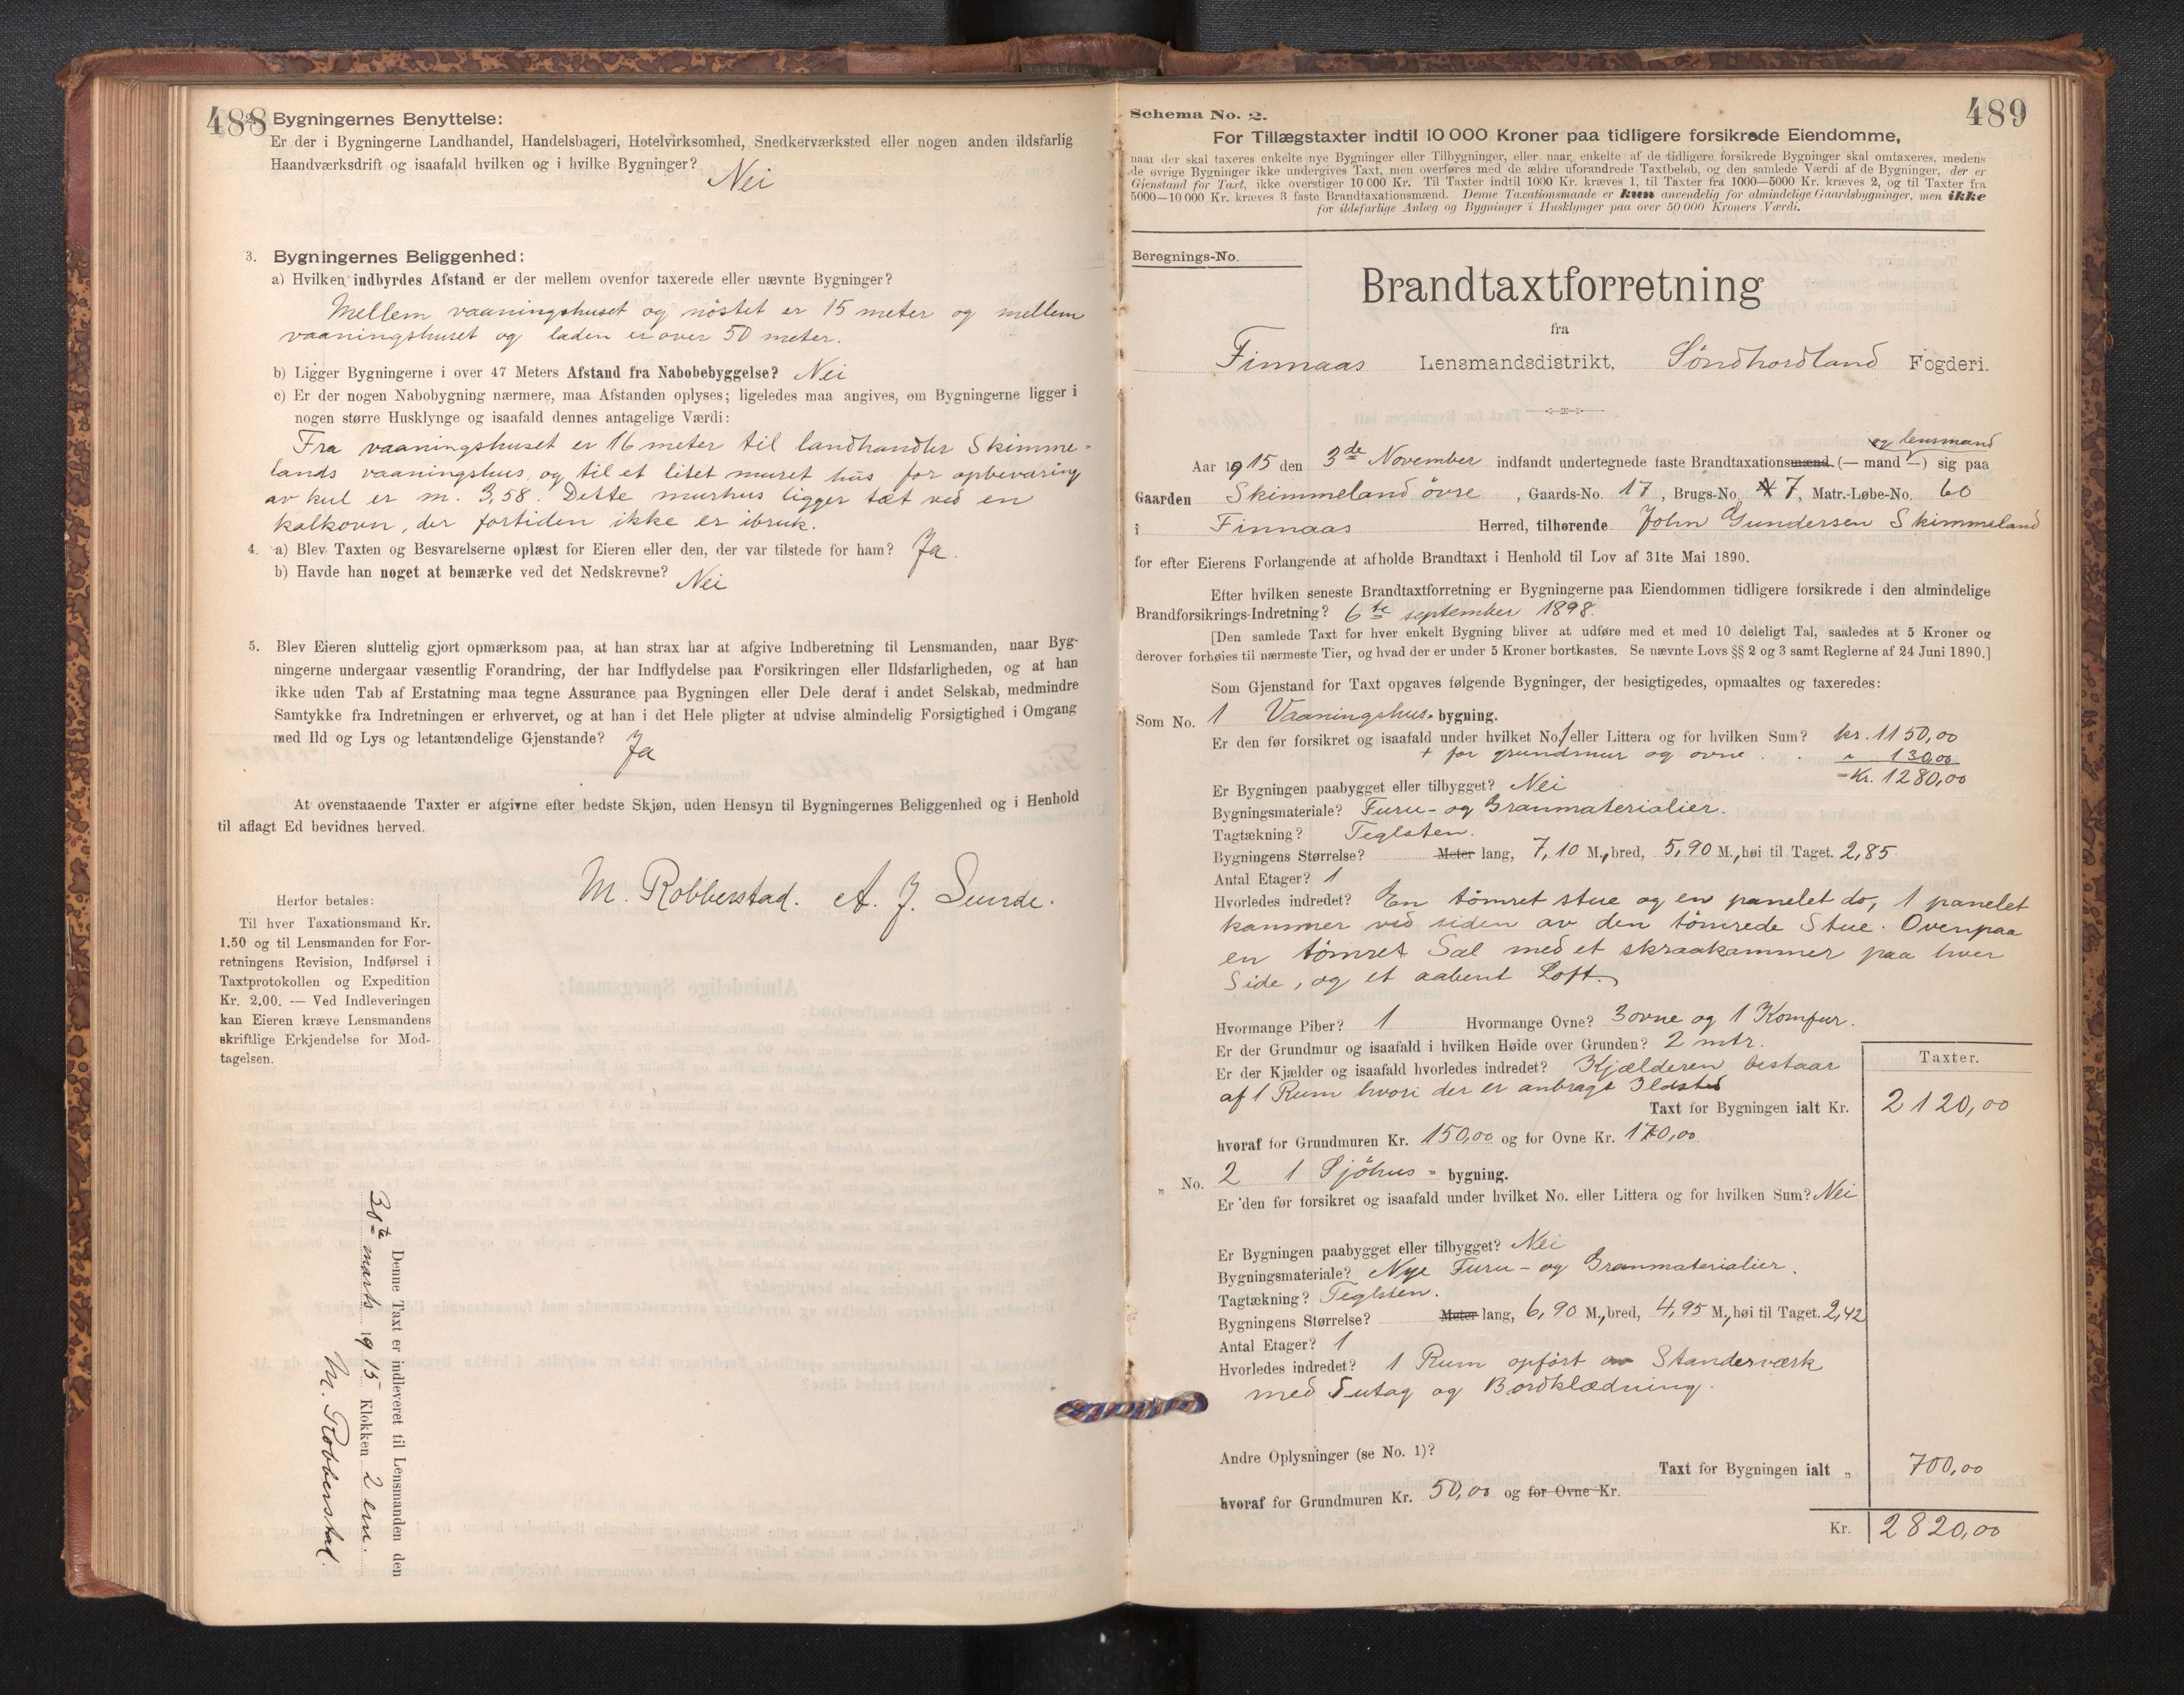 488
2. Bygningernes Benyttelse:
Er der i Bygningerne Landhandel, Handelsbageri, Hotelvirksomhed, Snedkerværksted eller nogen anden ildsfarlig
Haandværksdrift og isaafald hvilken og i hvilke Bygninger?
Nei
3. Bygningernes Beliggenhed:
a) Hvilken indbyrdes Afstand er der mellem ovenfor taxerede eller nævnte Bygninger?
Mellem vaaningshuset og nöstet er 15 meter og mellem
vaaningshuset og laden er over 50 meter.
b) Ligger Bygningerne i over 47 Meters Afstand fra Nabobebyggelse? Nei
c) Er der nogen Nabobygning nærmere, maa Afstanden oplyses; ligeledes maa angives, om Bygningerne ligger i
nogen større Husklynge og isaafald dennes antagelige Værdi:
Fra vaaningshuset er 16 meter til landhandler Skimme-
lands vaaningshus, og til et litet muret hus for opbevaring
av kul er m. 3,58. Dette murhus ligger tæt ved en
kalkovn, der fortiden ikke er ibruk.
4. a) Blev Taxten og Besvarelserne oplæst for Eieren eller den, der var tilstede for ham? Ja.
b) Havde han noget at bemærke ved det Nedskrevne? Nei
5. Blev Eieren sluttelig gjort opmærksom paa, at han strax har at afgive Indberetning til Lensmanden, naar Byg-
ningerne undergaar væsentlig Forandring, der har Indflydelse paa Forsikringen eller Ildsfarligheden, og at han
ikke uden Tab af Erstatning maa tegne Assurance paa Bygningen eller Dele deraf i andet Selskab, medmindre
Samtykke fra Indretningen er erhvervet, og at han i det Hele pligter at udvise almindelig Forsigtighed i Omgang
med Ild og Lys og letantændelige Gjenstande?
Ja
At ovenstaaende Taxter er afgivne efter bedste Skjøn, uden Hensyn til Bygningernes Beliggenhed og i Henhold
til aflagt Ed bevidnes herved.
M. Robberstad. A. J. Sunde.
Herfor betales:
Til hver Taxationsmand Kr.
1.50 og til Lensmanden for For-
retningens Revision, Indførsel i
Taxtprotokollen og Expedition
Kr. 2.00. — Ved Indleveringen
kan Eieren kræve Lensmandens
skriftlige Erkjendelse for Mod-
tagelsen.
Denne Taxt er indleveret til Lensmanden den
31te marts 1915 Klokken 2 em.
M. Robberstad.
489
Schema No. 2.
For Tillægstaxter indtil 10 000 Kroner paa tidligere forsikrede Eiendomme,
naar der skal taxeres enkelte nye Bygninger eller Tilbygninger, eller naar enkelte af de tidligere forsikrede Bygninger skal omtaxeres, medens
de øvrige Bygninger ikke undergives Taxt, men overføres med de ældre uforandrede Taxtbeløb, og den samlede Værdi af de Bygninger, der er
Gjenstand for Taxt, ikke overstiger 10 000 Kr. Til Taxter indtil 1000 Kr. kræves 1, til Taxter fra 1000—5000 Kr. kræves 2, og til Taxter fra
5000—10 000 Kr. kræves 3 faste Brandtaxationsmænd. Denne Taxationsmaade er kun anvendelig for almindelige Gaardsbygninger, men ikke
for ildsfarlige Anlæg og Bygninger i Husklynger paa over 50 000 Kroners Værdi.
Beregnings-No.
Brandtaxtforretning
fra
Finnaas Lensmandsdistrikt, Söndhordland Fogderi.
og lensmand
Aar 1915 den 3de November indfandt undertegnede faste Brandtaxationsmænd (— mand —) sig paa
Gaarden Skimmeland övre, Gaards-No. 17, Brugs-No. 7, Matr.-Løbe-No. 60
i Finnaas Herred, tilhørende John Gundersen Skimmeland
for efter Eierens Forlangende at afholde Brandtaxt i Henhold til Lov af 31te Mai 1890.
Efter hvilken seneste Brandtaxtforretning er Bygningerne paa Eiendommen tidligere forsikrede i den almindelige
Brandforsikrings-Indretning? 6te september 1898.
[Den samlede Taxt for hver enkelt Bygning bliver at udføre med et med 10 deleligt Tal, saaledes at 5 Kroner og
derover forhøies til nærmeste Tier, og hvad der er under 5 Kroner bortkastes. Se nævnte Lovs §§ 2 og 3 samt Reglerne af 24 Juni 1890.]
Som Gjenstand for Taxt opgaves følgende Bygninger, der besigtigedes, opmaaltes og taxeredes:
Som No. 1 Vaaningshus-bygning.
Er den før forsikret og isaafald under hvilket No. 1 eller Littera og for hvilken Sum? kr. 1150,00
+ for grundmur og ovne . . " 130,00
= Kr. 1280,00
Er Bygningen paabygget eller tilbygget? Nei
Bygningsmateriale? Furu- og Granmaterialier.
Tagtækning? Teglsten.
Bygningens Størrelse? Meter lang, 7,10 M., bred, 5,90 M., høi til Taget. 2,85
Antal Etager? 1
Hvorledes indredet? En tömret stue og en panelet do, 1 panelet
kammer ved siden av den tömrede Stue. Ovenpaa
en tömret Sal med et skraakammer paa hver
Side, og et aabent Loft.
Hvormange Piber? 1 Hvormange Ovne? 3 ovne og 1 Komfur.
Er der Grundmur og isaafald i hvilken Høide over Grunden? 2 mtr.
Er der Kjælder og isaafald hvorledes indredet? Kjælderen bestaar
af 1 Rum hvori der er anbragt Ildsted
Taxter.
Taxt for Bygningen ialt Kr. 2120,00
hvoraf for Grundmuren Kr. 150,00 og for Ovne Kr. 170,00
„ No. 2 1 Sjöhus - bygning.
Er den før forsikret og isaafald under hvilket No. eller Littera og for hvilken Sum? Nei
Er Bygningen paabygget eller tilbygget? Nei
Bygningsmateriale? Nye Furu- og Granmaterialier.
Tagtækning? Teglsten.
Bygningens Størrelse? Meter lang, 6,90 M., bred, 4,95 M., høi til Taget. 2,42
Antal Etager? 1
Hvorledes indredet? 1 Rum opfört av Standerværk
med Sutag og Bordklædning.
Andre Oplysninger (se No. 1)?
Taxt for Bygningen ialt „ 700,00
hvoraf for Grundmuren Kr. 50,00 og for Ovne Kr.
Kr. 2820,00